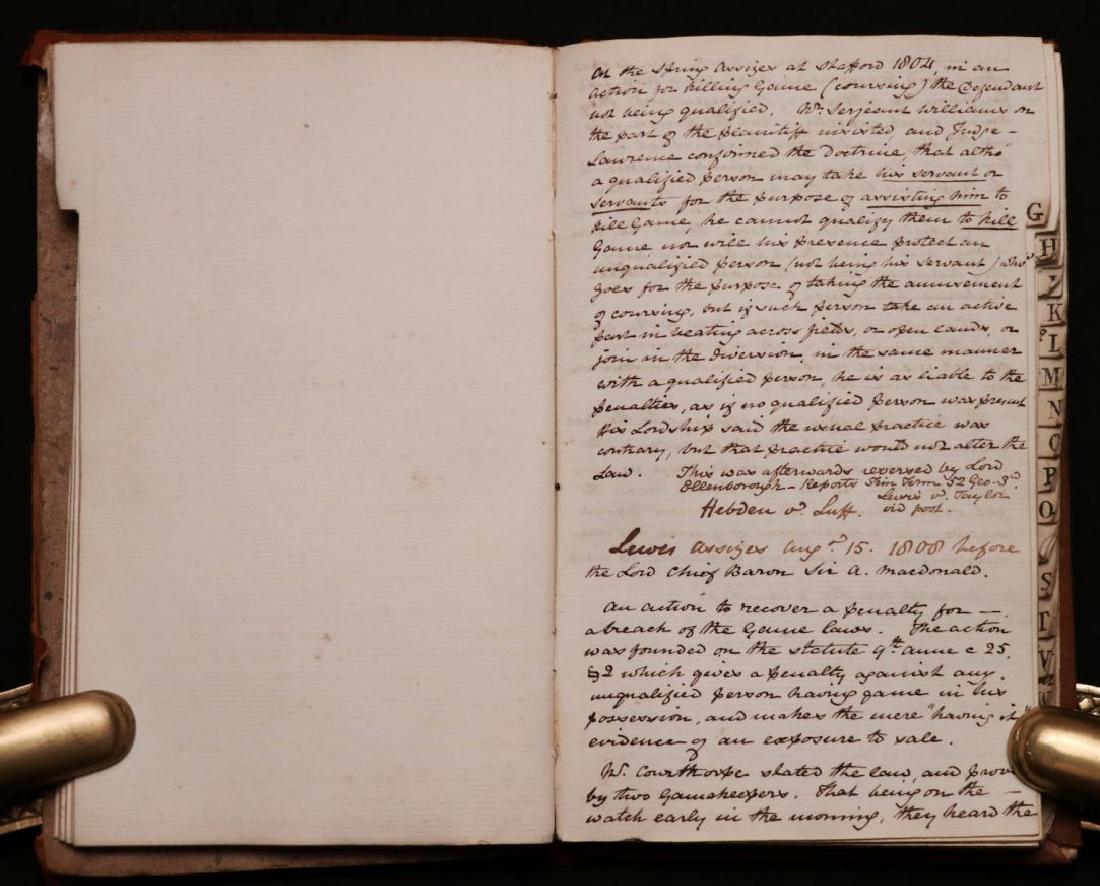 At the Spring Assizes at Stafford 1804, in an
action for killing Game (coursing) the Defendant
not being qualified. Mr. Serjeant Williams on
the part of the Plaintiff insisted, and Judge –
Lawrence confirmed the Doctrine, that altho'
a qualified person may take his servant or
servants for the purpose of assisting him to
kill Game, he cannot qualify them to kill
Game nor will his presence protect an
unqualified person (not being his servant) who
goes for the purpose of taking the amusement
of coursing, but if such person take an active
part in beating across fields, or open lands, or
join in the diversion, in the same manner
with a qualified person, he is as liable to the
penalties, as if no qualified person was present
His Lordship said the usual practice was
contrary, but that practice would not alter the
Law. This was afterwards reversed by Lord
Ellenborough – Reports Trin Term 52 Geo. 3rd.
Lewis v. Taylor
Hebden v. Luff. vid post.
Lewes Assizes Augt. 15. 1808 before
the Lord Chief Baron Sir A. Macdonald.
An action to recover a penalty for –
a breach of the Game Laws. The action
was founded on the statute 9th Anne c 25.
§2 which gives a penalty against any.
unqualified person having game in his
possession, and makes the mere "having it"
evidence of an exposure to sale.
Mr. Courthorpe stated the law, and prov
by two Gamekeepers. That being on the –
watch early in the morning, they heard the
G
H
K
L
M
N
O
P
Q
S
T
V
W